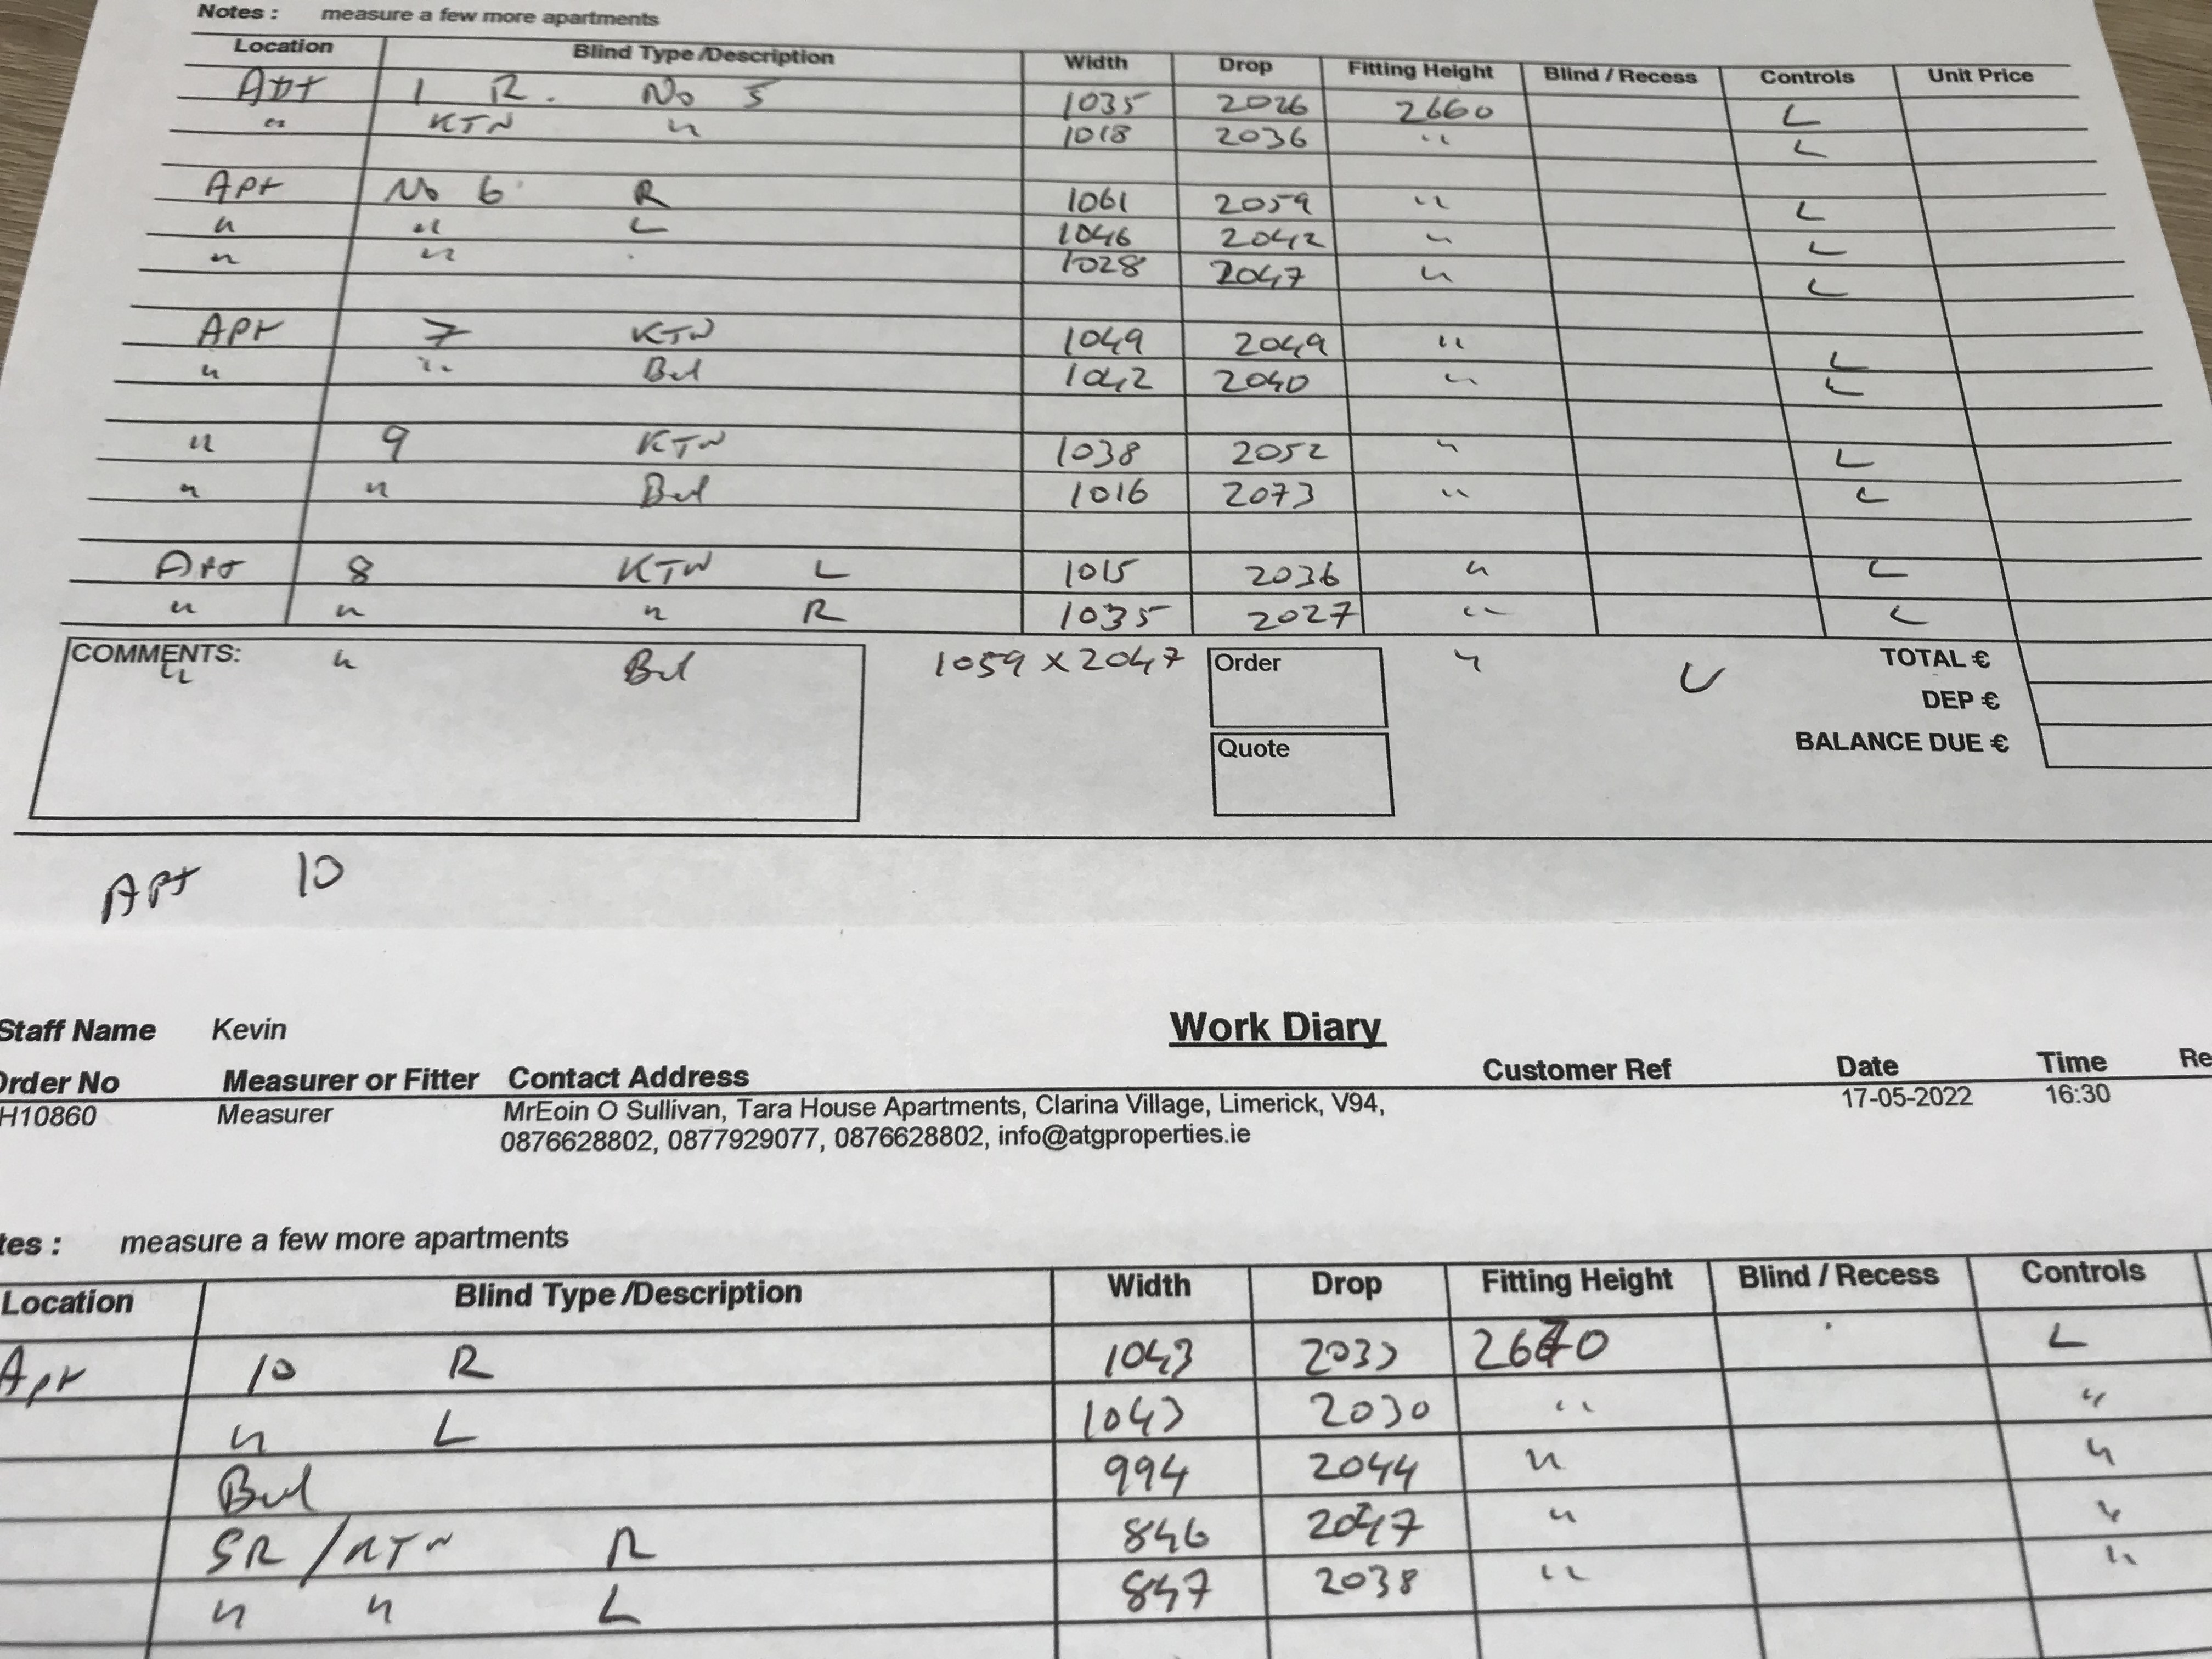 Notes : measure a few more apartments
Location Blind Type /Description Width Drop Fitting Height Blind / Recess Controls Unit Price
Apt 1 R. No 5 1035 2026 2660 L
" KTN " 1018 2036 " L
Apt No 6 R 1061 2059 " L
" " L 1046 2042 " L
" " 1028 2047 " L
Apt 7 KTN 1049 2049 " L
" " Bed 1042 2040 " L
" 9 KTN 1038 2052 " L
" " Bed 1016 2073 " L
Apt 8 KTN L 1015 2036 " L
" " " R 1035 2027 " L
COMMENTS: " " Bed 1059 x 2047 Order " L TOTAL €
DEP €
Quote BALANCE DUE €
Apt 10
Work Diary
Staff Name Kevin
Order No Measurer or Fitter Contact Address Customer Ref Date Time Re
H10860 Measurer MrEoin O Sullivan, Tara House Apartments, Clarina Village, Limerick, V94, 17-05-2022 16:30
0876628802, 0877929077, 0876628802, info@atgproperties.ie
tes : measure a few more apartments
Location Blind Type /Description Width Drop Fitting Height Blind / Recess Controls
Apt 10 R 1043 2033 L
" L 1043 2030 " "
Bed 994 2044 " "
SR / KTN R 846 2047 " "
" " L 847 2038 " "